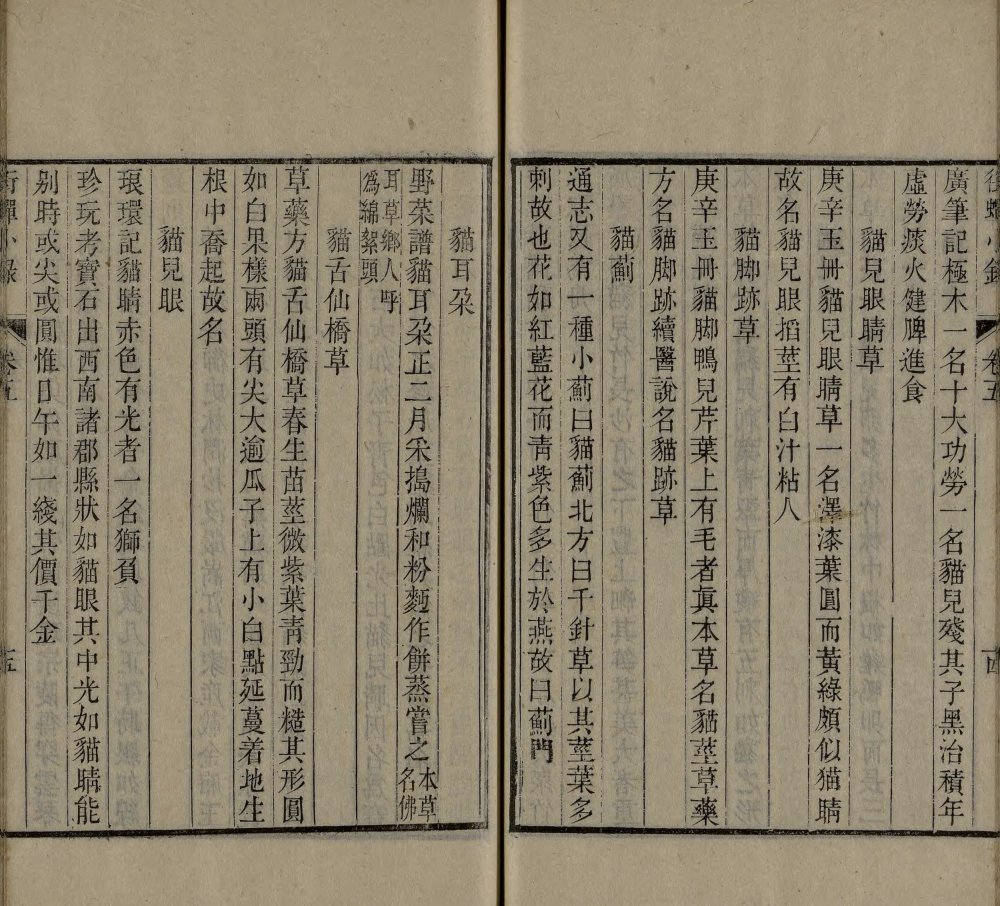 廣筆記極木一名十大功勞一名貓兒殘其子黑治積年
虛勞痰火健脾進食
貓兒眼睛草
庚辛玉冊貓兒眼睛草一名澤漆葉圓而黃綠頗似猫睛
故名貓兒眼掐莖有白汁粘人
貓脚跡草
庚辛玉冊貓脚鴨兒芹葉上有毛者眞本草名貓莖草藥
方名貓脚跡續醫說名貓跡草
貓薊
通志又有一種小薊曰貓薊北方曰千針草以其莖葉多
刺故也花如紅藍花而靑紫色多生於燕故曰薊門
貓耳朶
野菜譜貓耳朶正二月采搗爛和粉麪作餅蒸嘗之本草名佛
耳草鄉人呼爲綿絮頭
貓舌仙橋草
草藥方貓舌仙橋草春生苗莖微紫葉靑勁而糙其形圓
如白果樣兩頭有尖大逾瓜子上有小白點延蔓着地生
根中喬起故名
貓兒眼
琅環記貓睛赤色有光者一名獅負
珍玩考寶石出西南諸郡縣狀如貓眼其中光如貓睛能
别時或尖或圓惟日午如一綫其價千金
銜蟬小錄 卷五 五